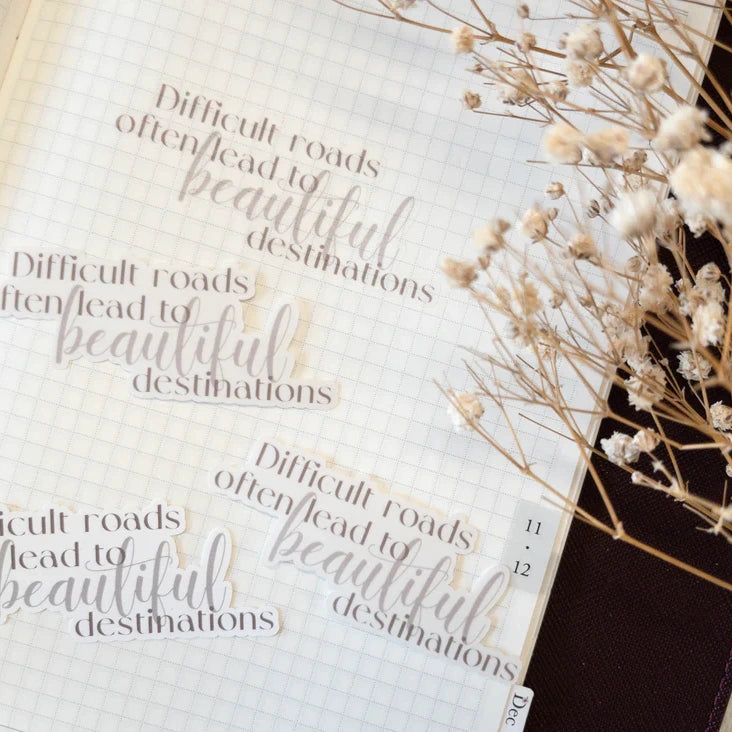 Difficult roads
often lead to
beautiful
destinations
Difficult roads
ften lead to
beautiful
destinations
Difficult roads
often lead to
beautiful
destinations
icult roads
lead to
beautiful
destinations
11
·
12
Dec